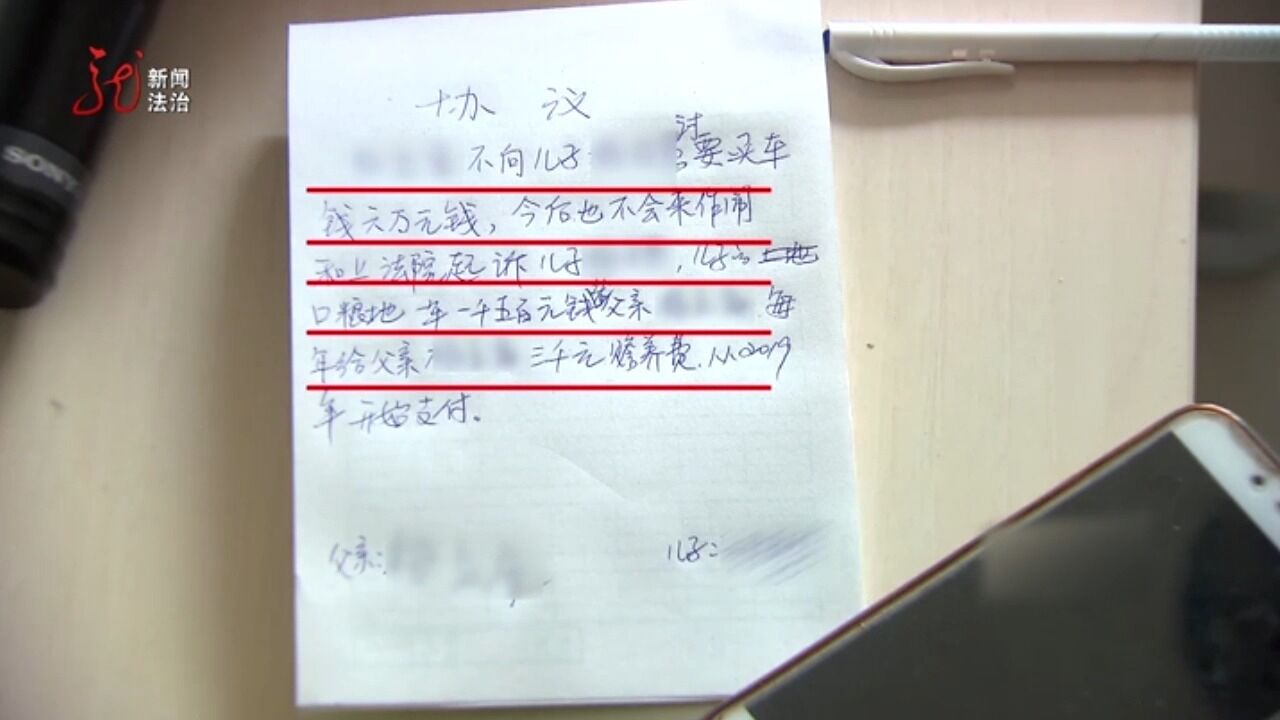 新闻
法治
SONY
协 议
不向儿子 讨要买车
钱六万元钱，今后也不会来作闹
和上法院起诉儿子 ，儿子
口粮地 年一千五百元钱 父亲 每
年给父亲 三千元赡养费.从2019
年开始支付。
父亲： 儿子：